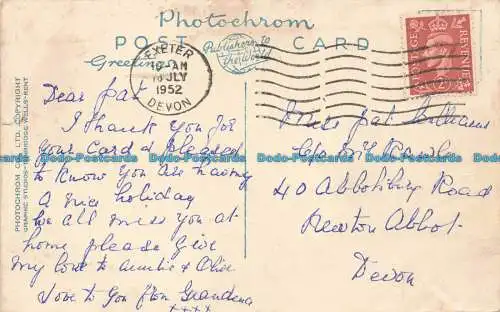 Photochrom
POST CARD
Greetings
Publishers to
the World
EXETER
10 - AM
JLY
1952
DEVON
POSTAGE
REVENUE
PHOTOCHROM CO. LTD. COPYRIGHT
GRAPHIC STUDIOS-TUNBRIDGE WELLS-KENT
Dear Pat
I Thank you for
your Card & Pleased
to Know you are having
a nice holiday
we all miss you at
home please give
my love to auntie & Olive
Love to you from Grandma
xxxx
Miss Pat
40 Abbotsbury Road
Newton Abbot.
Devon
Dodo-Postcards Dodo-Postcards Dodo-Postcards Dodo-Postcards